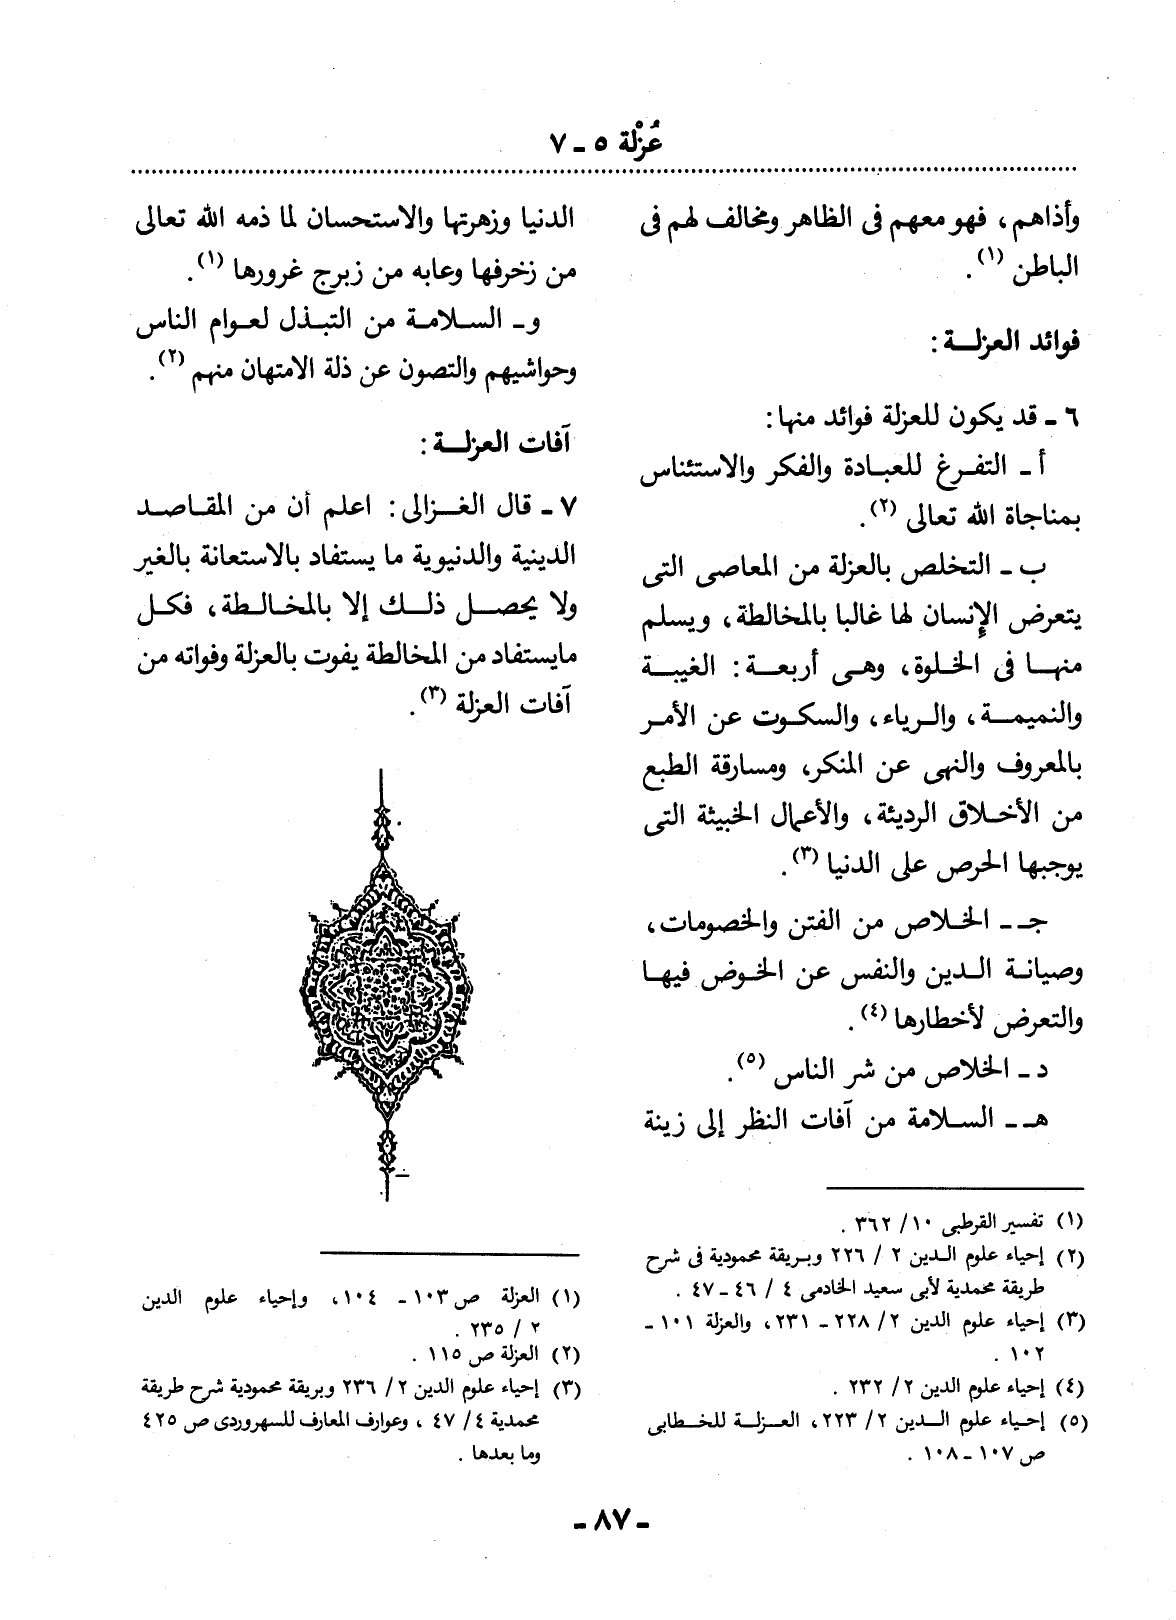 عُزْلة ٥ ـ ٧
وأذاهم، فهو معهم فى الظاهر ومخالف لهم فى
الباطن (١).
فوائد العزلـــة :
٦ ـ قد يكون للعزلة فوائد منها:
أ ـ التفرغ للعبادة والفكر والاستئناس
بمناجاة الله تعالى (٢).
ب ـ التخلص بالعزلة من المعاصى التى
يتعرض الإنسان لها غالبا بالمخالطة، ويسلم
منها فى الخلوة، وهى أربعة: الغيبة
والنميمة، والرياء، والسكوت عن الأمر
بالمعروف والنهى عن المنكر، ومسارقة الطبع
من الأخلاق الرديئة، والأعمال الخبيثة التى
يوجبها الحرص على الدنيا (٣).
جـ ـ الخلاص من الفتن والخصومات،
وصيانة الدين والنفس عن الخوض فيها
والتعرض لأخطارها (٤).
د ـ الخلاص من شر الناس (٥).
هـ ـ السلامة من آفات النظر إلى زينة
(١) تفسير القرطبى ١٠/ ٣٦٢ .
(٢) إحياء علوم الدين ٢ / ٢٢٦ وبريقة محمودية فى شرح
طريقة محمدية لأبى سعيد الخادمى ٤ / ٤٦ ـ ٤٧ .
(٣) إحياء علوم الدين ٢/ ٢٢٨ ـ ٢٣١، والعزلة ١٠١ ـ
١٠٢ .
(٤) إحياء علوم الدين ٢/ ٢٣٢ .
(٥) إحياء علوم الدين ٢/ ٢٢٣، العزلة للخطابى
ص ١٠٧ ـ ١٠٨ .
الدنيا وزهرتها والاستحسان لما ذمه الله تعالى
من زخرفها وعابه من زبرج غرورها (١).
و ـ السلامة من التبذل لعوام الناس
وحواشيهم والتصون عن ذلة الامتهان منهم (٢).
آفات العزلـــة :
٧ ـ قال الغزالى: اعلم أن من المقاصد
الدينية والدنيوية ما يستفاد بالاستعانة بالغير
ولا يحصل ذلك إلا بالمخالطة، فكل
مايستفاد من المخالطة يفوت بالعزلة وفواته من
آفات العزلة (٣).
(١) العزلة ص ١٠٣ ـ ١٠٤، وإحياء علوم الدين
٢ / ٢٣٥ .
(٢) العزلة ص ١١٥ .
(٣) إحياء علوم الدين ٢/ ٢٣٦ وبريقة محمودية شرح طريقة
محمدية ٤/ ٤٧ ، وعوارف المعارف للسهروردى ص ٤٢٥
وما بعدها .
ـ ٨٧ ـ